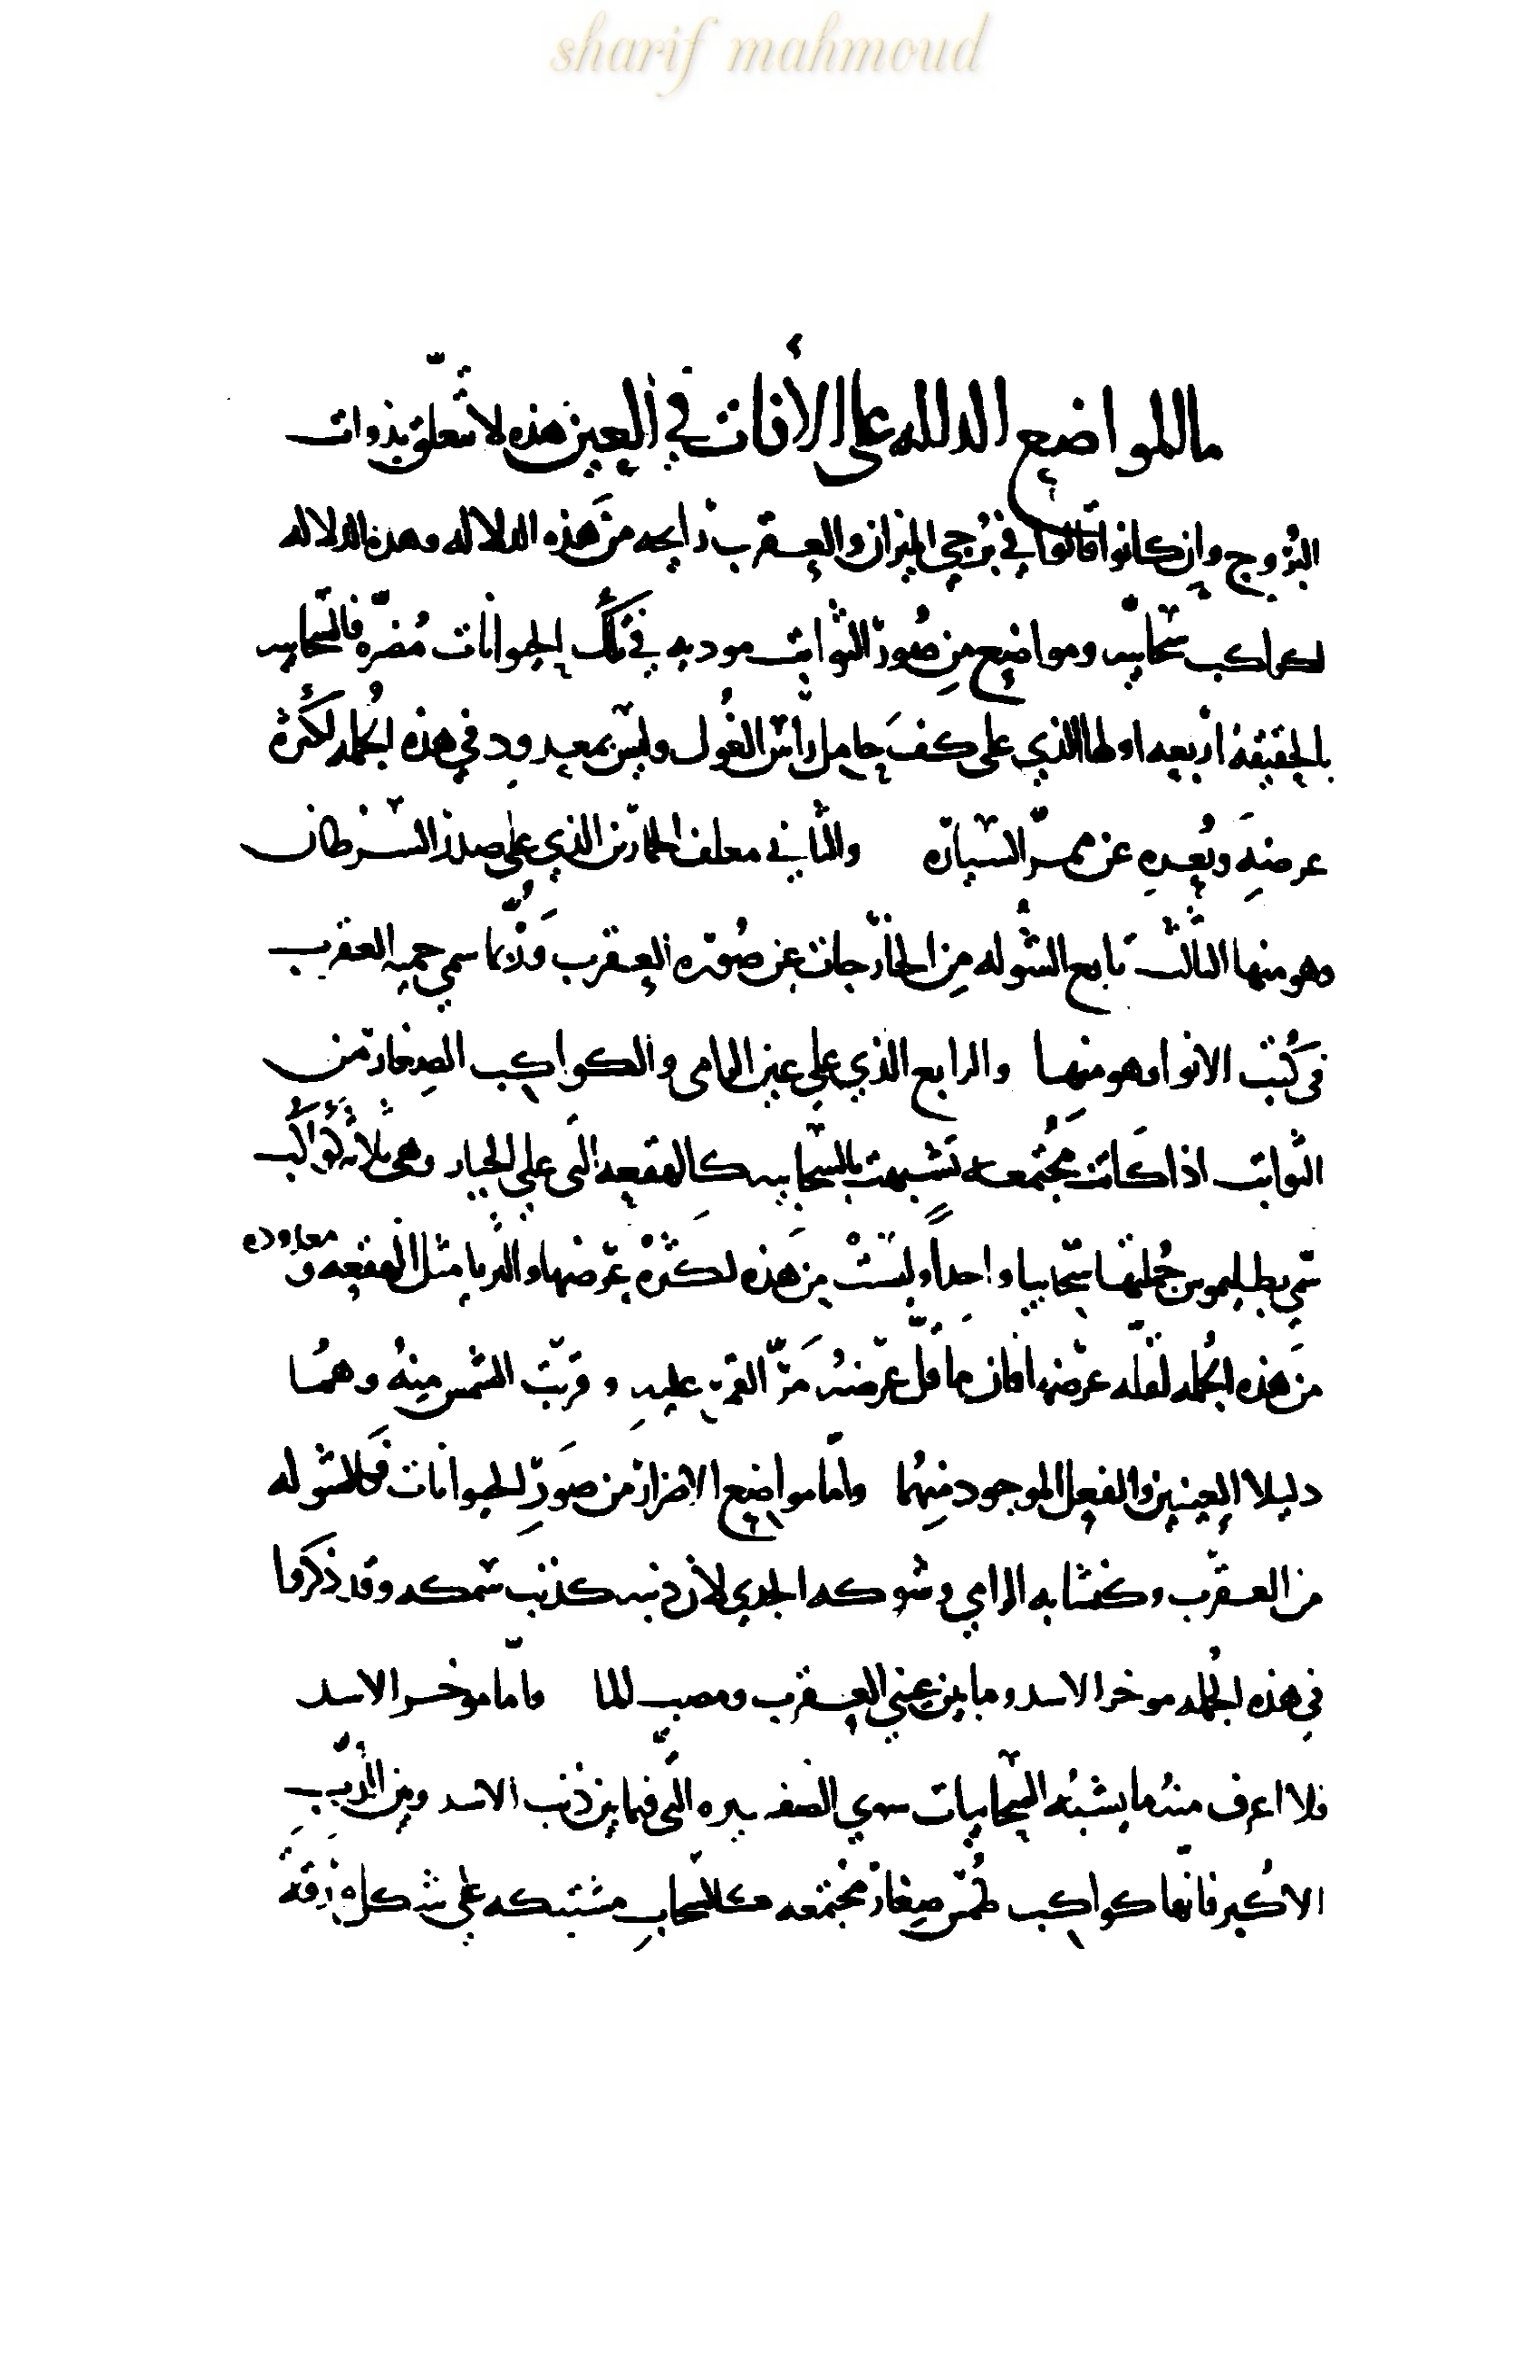 sharif mahmoud
ما المواضع الدالله على الأفات في العين هذه لا تتعلق بذوات
البروج وإن كانوا قالوا في برجي الميزان والعقرب رايحه من هذه الدلاله وهذه الدلاله
لكواكب سحابيه ومواضع من صُور الثوابت موديه في تلك الحيوانات مُضرّه فالسحابيه
بالحقيقه اربعه اولها الذي على كف حامل رأس الغُول وليس بمعدود في هذه الجمله لكثرة
عرضهِ وبُعدهِ عن ممرّ السيّاره والثاني معلف الحمارين الذي على صدر السرطان
وهو منها الثالث تابع الشوله من الخارجات عن صُورَه العقرب ورُبّما سمي حمه العقرب
في كُتب الانوا وهو منها والرابع الذي على عين الرامي والكواكب الصغار من
الثوابت اذا كانت مُجتمعه تشبهت بالسّحابيه كالهقعه التي على الجبار وهي ثلاثه كواكب
سمّي بطليموس جُملتها سحابيا واحداً وليستْ من هذه لكثرة عرضها والثريا مثل الهقعه و معدوده
من هذه الجُمله لقلّه عرضها فان ما قلّ عرضهُ مَرّ القمر عليه وقربت الشمس منهُ وهُما
دليلا العينين والفعل الموجود منهُما وامّا مواضع الاضرار من صور الحيوانات فكالشوله
من العقرب وكنشابه الرامي وشوكه الجدي لان ذنبه كذنب سمكه وقد ذكروا
في هذه الجُمله موخر الاسد وما بين عيني العقرب ومصب الما وامّا موخر الاسد
فلا اعرف منهُ ما يشبهُ السّحابيات سوي الضفيره التي فيما بين ذنب الاسد وبين الدُّبِّ
الاكبر فانّها كواكب طُمس صغار مُجتمعه كالسّحاب مشتبكه على شكل ورقه